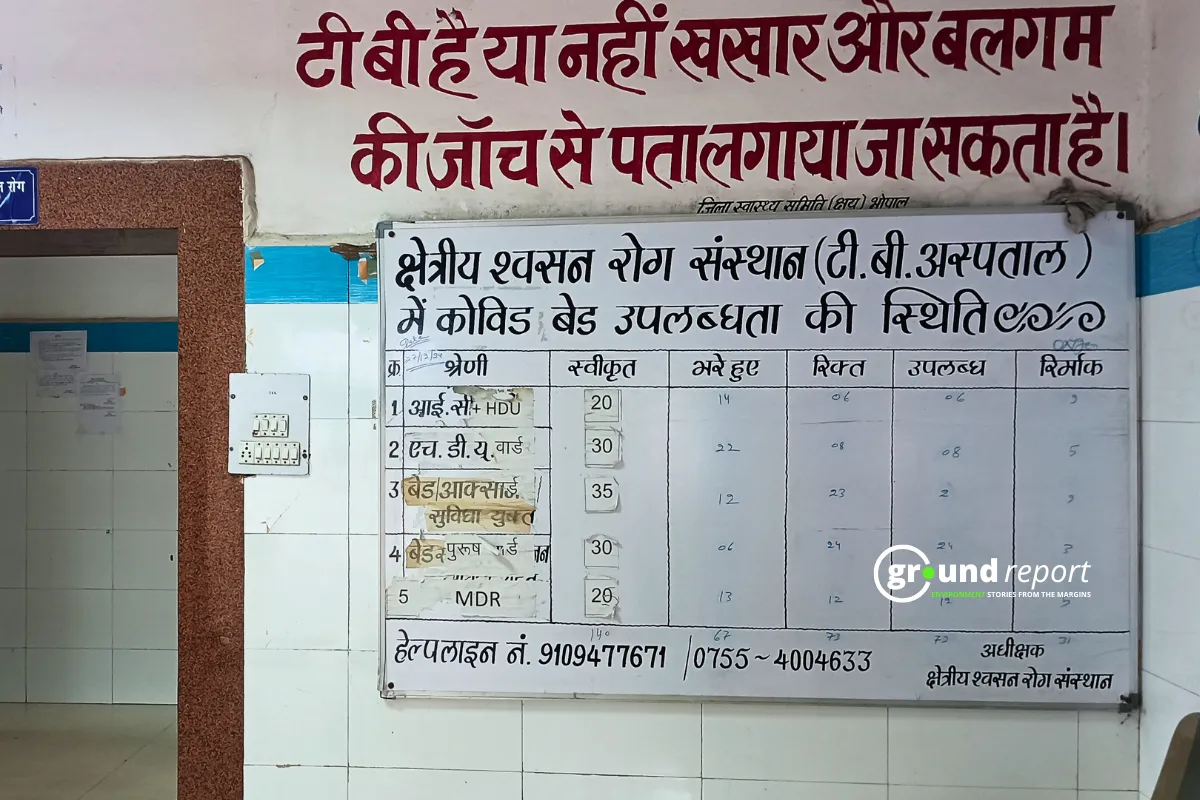 टी बी है या नहीं खखार और बलगम
की जाँच से पता लगाया जा सकता है।
जिला स्वास्थ्य समिति (क्षय) भोपाल
रोग
क्षेत्रीय श्वसन रोग संस्थान (टी.बी.अस्पताल)
में कोविड बेड उपलब्धता की स्थिति
27/12/24
क्र श्रेणी स्वीकृत भरे हुए रिक्त उपलब्ध रिर्माक
1 आई.सी+ HDU 20 14 06 06
2 एच.डी.यू.वार्ड 30 22 08 08 5
3 बेड/आक्सीर्ड 35 12 23 2
सुविधा युक्त
4 बेड पुरूष र्ड 30 06 24 24 3
5 MDR 20 13 12 12
140 67 73 72 31
हेल्पलाइन नं. 9109477671 / 0755~4004633
अधीक्षक
क्षेत्रीय श्वसन रोग संस्थान
ground report
ENVIRONMENT STORIES FROM THE MARGINS